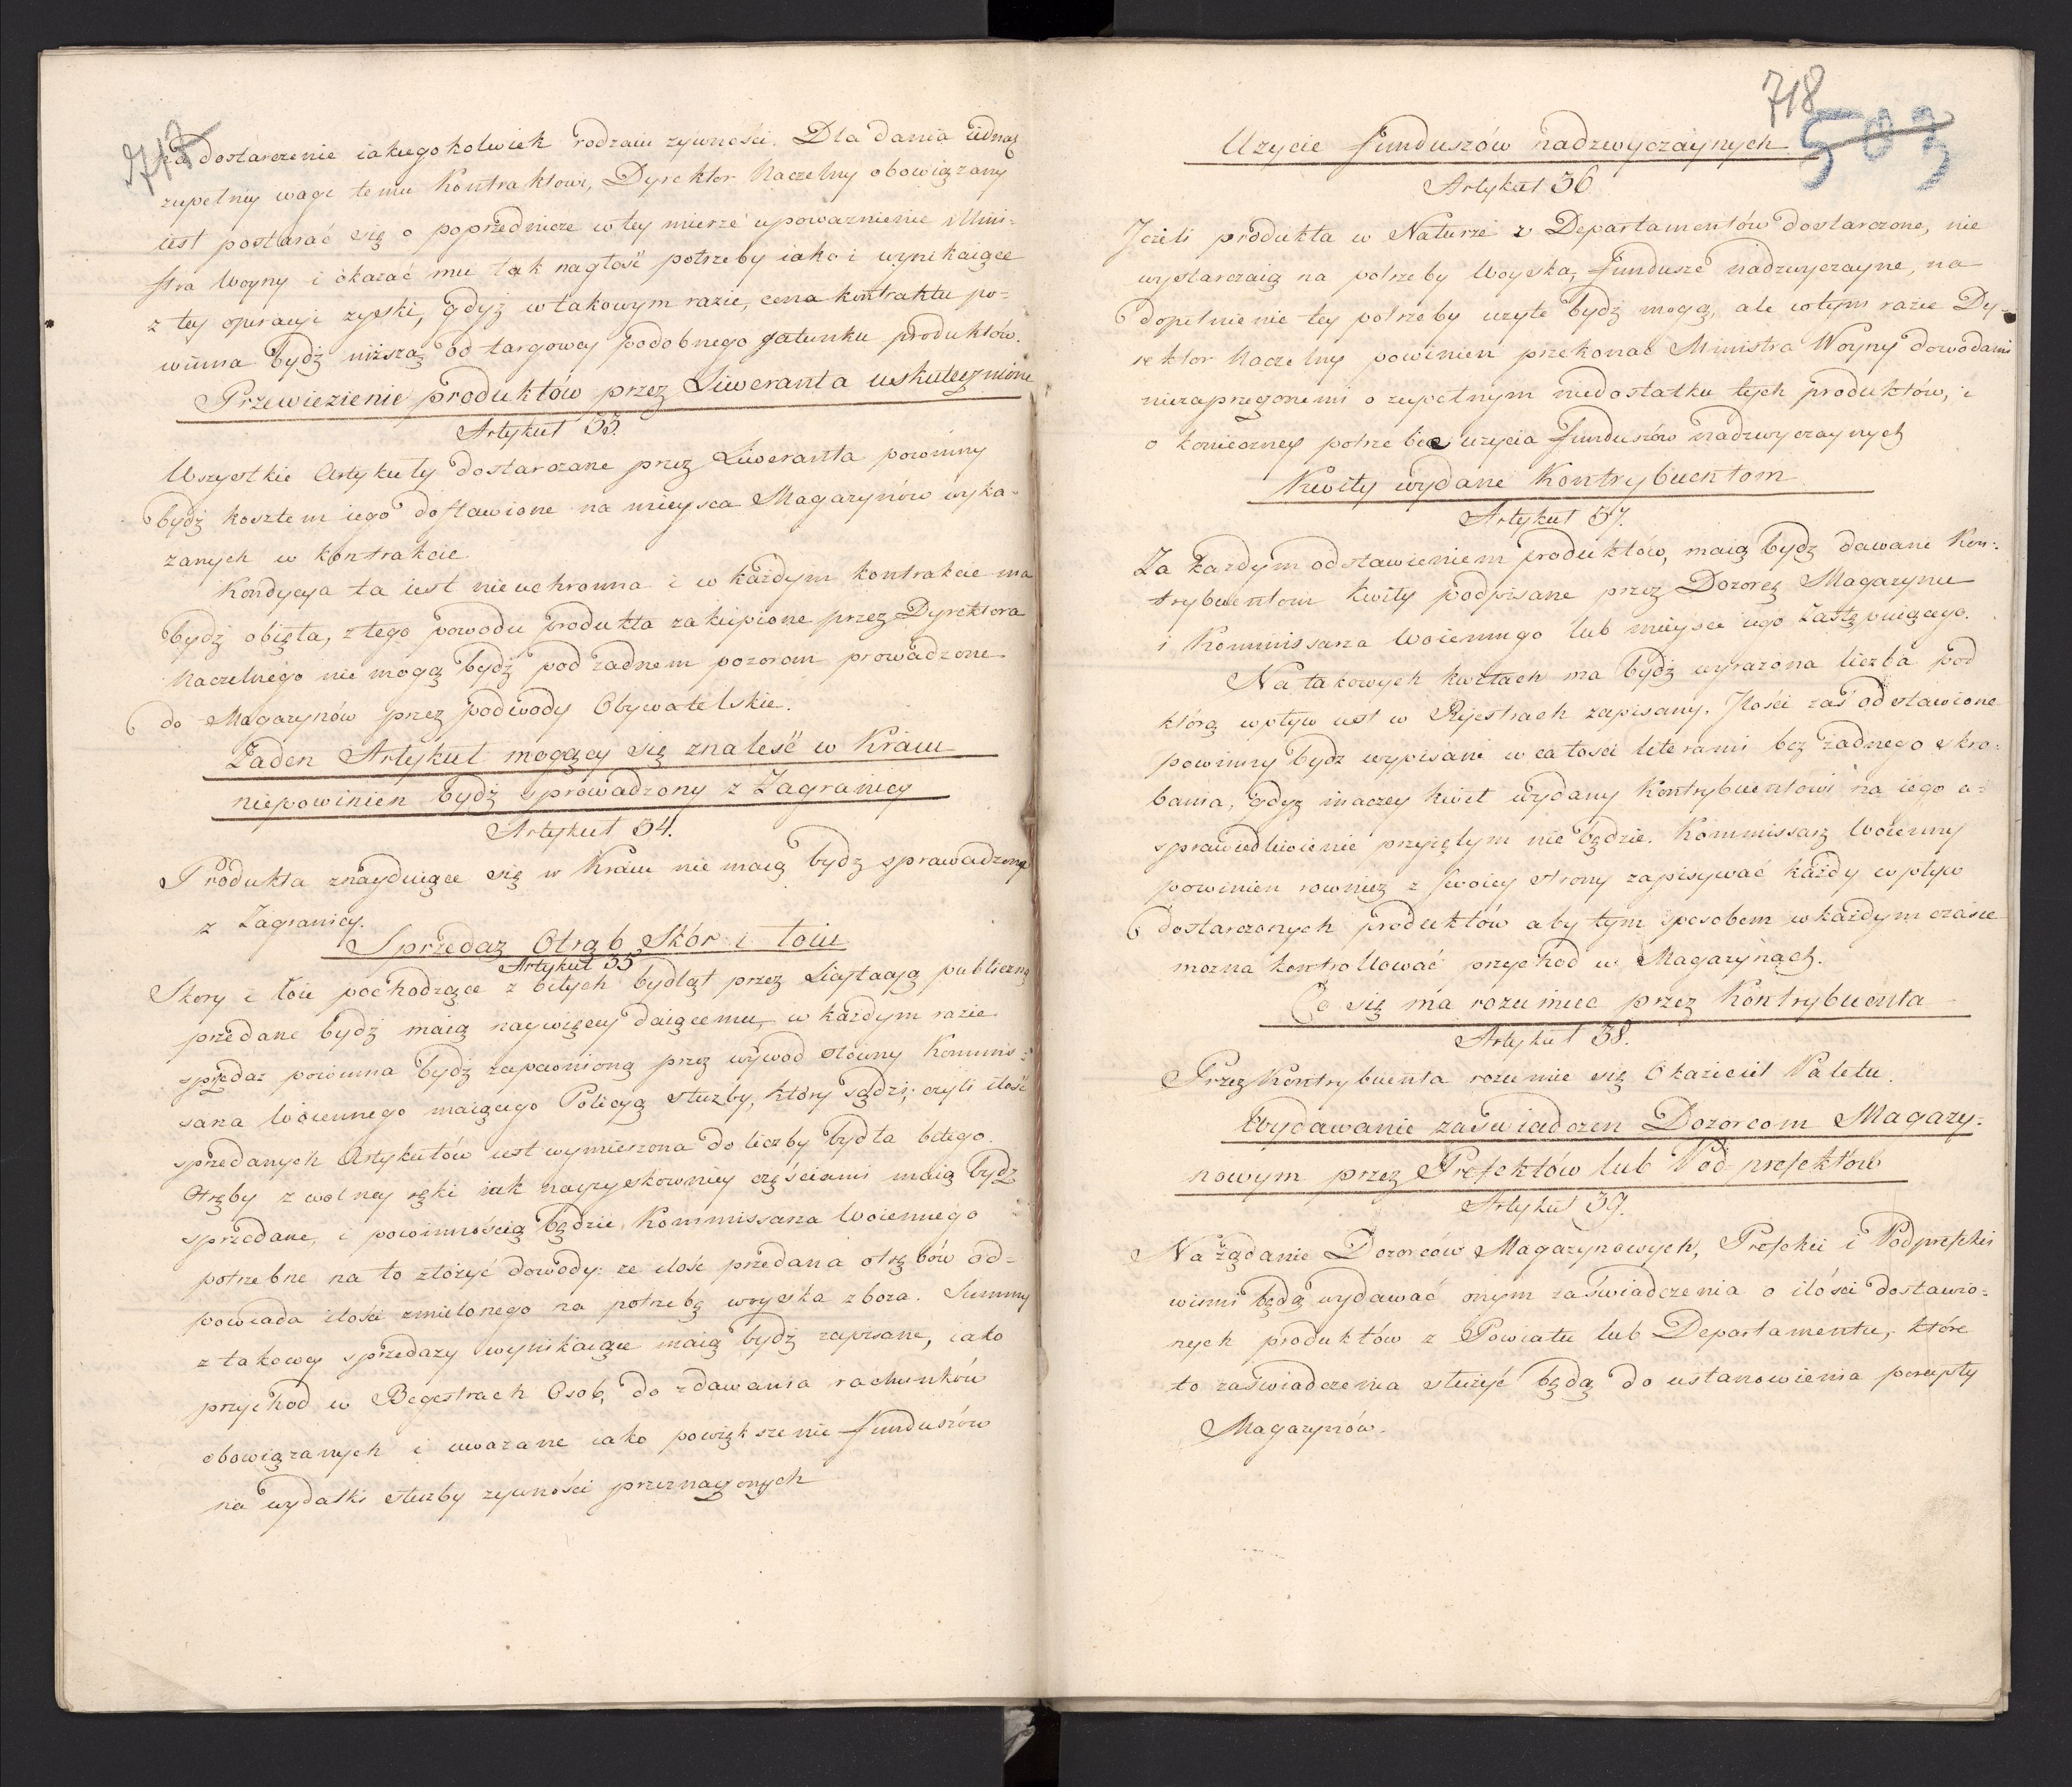 717
na dostarczenie iakiegokolwiek rodzaiu żywności. Dla dania iednaq
zupełney wagi temu Kontraktowi, Dyrektor Naczelny obowiązany
iest postarać się o poprzednicze w tey mierze upoważnienie Mini-
stra Woyny i okazać mu tak nagłość potrzeby iako i wynikaiące
z tey operacyi zyski, gdyż w takowym razie, cena kontraktu po-
winna bydź niższą od targowey podobnego gatunku produktów.
Przewiezienie produktów przez Liweranta uskutecznione
Artykuł 33.
Wszystkie Artykuły dostarczane przez Liweranta powinny
bydź kosztem iego dostawione na mieysca Magazynów wyka-
zanych w kontrakcie
Kondycya ta iest nieuchronna i w każdym kontrakcie ma
bydź obięta, z tego powodu produkta zakupione przez Dyrektora
Naczelnego nie mogą bydź pod żadnem pozorem prowadzone
do Magazynów przez podwody Obywatelskie.
Żaden Artykuł mogący się znaleść w Kraiu
niepowinien bydź sprowadzony z Zagranicy
Artykuł 34.
Produkta znayduiące się w Kraiu nie maią bydź sprowadzone
z Zagranicy.
Sprzedaż Otrąb Skór i łoiu
Artykuł 35
Skory i łoie pochodzące z bitych bydląt przez Licytacyą publiczną
przedane bydź maią naywięcey daiącemu, w każdym razie
sprzedaż powinna bydź zapewnioną przez wywod słowny Kommis-
sarza Woiennego maiącego Policyą służby, który sądzi; czyli ilość
sprzedanych Artykułów iest wymierzona do liczby bydła bitego.
Otręby z wolney ręki iak nayzyskowniey częściami maią bydz
sprzedane, i powinnością będzie, Kommissarza Woiennego
potrzebne na to złożyć dowody: że ilość przedana otrębów od-
powiada ilości zmielonego na potrzebę woyska zboza. Summy
z takowey sprzedaży wynikaiące maią bydź zapisane, iako
przychod w Regestrach Osob, do zdawania rachunków
obowiązanych i uważane iako powiększenie funduszów
na wydatki służby zywności przeznaczonych
718
503
Użycie funduszów nadzwyczaynych
Artykuł 36
Jeżeli produkta w Naturze z Departamentów dostarczone, nie
wystarczaią na potrzeby Woyska, fundusze nadzwyczayne, na
dopełnienie tey potrzeby uzyte bydź mogą, ale w tym razie Dy-
rektor Naczelny powinien przekonać Ministra Woyny dowodami
niezaprzegonemi o zupełnym niedostatku tych produktów, i
o konieczney potrzebie uzycia funduszów nadzwyczaynych
Kwity wydane Kontrybuentom
Artykuł 37.
Za każdym odstawieniem produktów, maią bydź dawane Kon-
trybuentom kwity podpisane przez Dozorcę Magazynu
i Kommissarza Woiennego lub mieysce iego Zastępuiącego.
Na takowych kwitach ma bydź wyrażona liczba pod
którą wpływ iest w Rejestrach zapisany. Ilości zaś odstawione
powinny bydź wypisane w całości literami bez żadnego skro-
bania, gdyż inaczey kwit wydany Kontrybuentowi na iego u-
sprawiedliwienie przyiętym nie będzie. Kommissarz Woienny
powinien rownież z swoiey strony zapisywać każdy wpływ
dostarczonych produktów aby tym sposobem w każdym czasie
można kontrollować przychod w Magazynach.
Co się ma rozumiec przez Kontrybuenta
Artykuł 38.
Przez Kontrybuenta rozumie się Okaziciel Paletu.
Wydawanie zaświadczen Dozorcom Magazy-
nowym przez Prefektów lub Podprefektów
Artykuł 39.
Na żądanie Dozorców Magazynowych, Prefekci i Podprefekci
winni będą wydawać onym zaświadczenia o ilości dostawio-
nych produktów z Powiatu lub Departamentu, które
to zaświadczenia służyć będą do ustanowienia percepty
Magazynów.